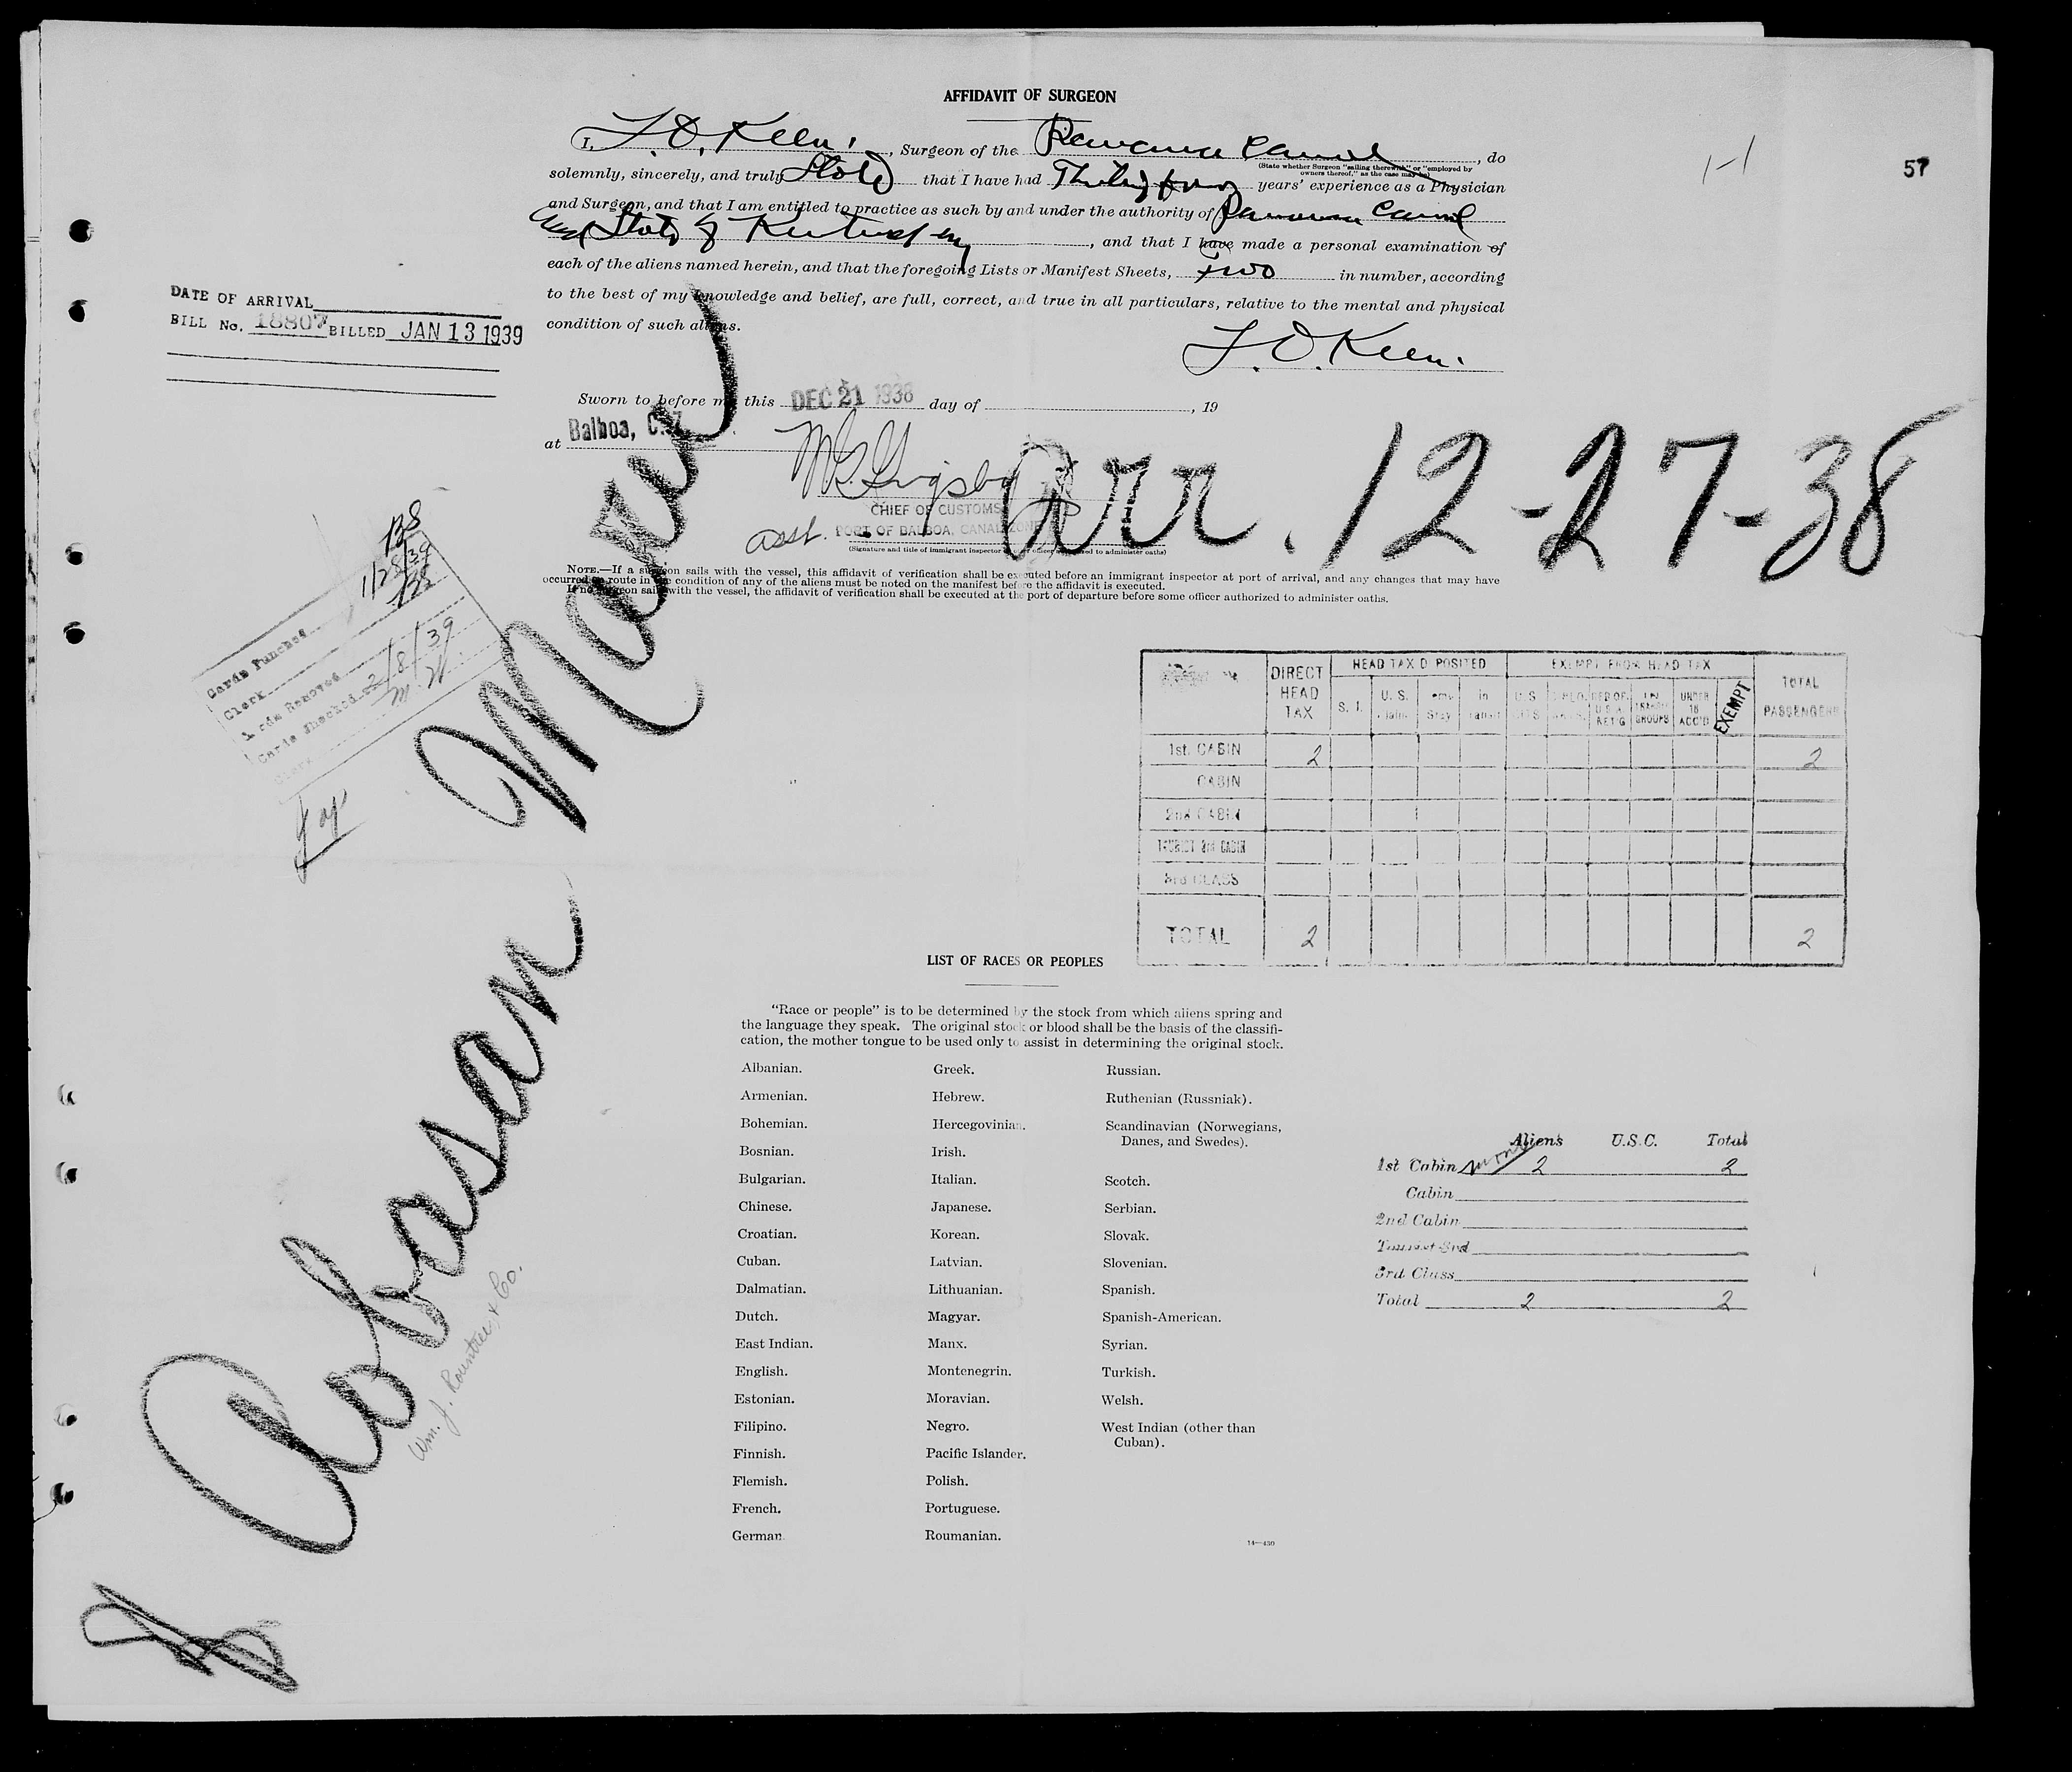 AFFIDAVIT OF SURGEON
I, L. O. Keen, Surgeon of the Panama Canal, do
(State whether Surgeon "sailing therewith" or "employed by
owners thereof," as the case may be)
solemnly, sincerely, and truly State that I have had Thirty four years' experience as a Physician
and Surgeon, and that I am entitled to practice as such by and under the authority of Panama Canal
and State of Kentucky, and that I have made a personal examination of
each of the aliens named herein, and that the foregoing Lists or Manifest Sheets, Two in number, according
to the best of my knowledge and belief, are full, correct, and true in all particulars, relative to the mental and physical
condition of such aliens.
1-1
57
DATE OF ARRIVAL
BILL No. 18807 BILLED JAN 13 1939
Sworn to before me this DEC 21 1938 day of , 19
at Balboa, C.Z.
CHIEF OF CUSTOMS
asst. PORT OF BALBOA, CANAL ZONE
Arr. 12-27-38
NOTE.—If a surgeon sails with the vessel, this affidavit of verification shall be executed before an immigrant inspector at port of arrival, and any changes that may have
occurred en route in the condition of any of the aliens must be noted on the manifest before the affidavit is executed.
If no surgeon sails with the vessel, the affidavit of verification shall be executed at the port of departure before some officer authorized to administer oaths.
Cards Punched 1/28/39
Clerk
Cards Removed
Cards Checked 2/8/39
Clerk
Jap
Abasan Maru
Wm. J. Rountree & Co.
DIRECT HEAD TAX
HEAD TAX DEPOSITED
EXEMPT FROM HEAD TAX
TOTAL PASSENGERS
S. I.
U. S.
in
UNDER 16 ACC'D
EXEMPT
1st. CABIN 2 2
CABIN
2nd CABIN
TOURIST 3rd CABIN
3rd CLASS
TOTAL 2 2
LIST OF RACES OR PEOPLES
"Race or people" is to be determined by the stock from which aliens spring and
the language they speak. The original stock or blood shall be the basis of the classifi-
cation, the mother tongue to be used only to assist in determining the original stock.
Albanian.
Armenian.
Bohemian.
Bosnian.
Bulgarian.
Chinese.
Croatian.
Cuban.
Dalmatian.
Dutch.
East Indian.
English.
Estonian.
Filipino.
Finnish.
Flemish.
French.
German.
Greek.
Hebrew.
Hercegovinian.
Irish.
Italian.
Japanese.
Korean.
Latvian.
Lithuanian.
Magyar.
Manx.
Montenegrin.
Moravian.
Negro.
Pacific Islander.
Polish.
Portuguese.
Roumanian.
Russian.
Ruthenian (Russniak).
Scandinavian (Norwegians,
Danes, and Swedes).
Scotch.
Serbian.
Slovak.
Slovenian.
Spanish.
Spanish-American.
Syrian.
Turkish.
Welsh.
West Indian (other than
Cuban).
14—430
Aliens U.S.C. Total
1st Cabin 2 2
Cabin
2nd Cabin
Tourist 3rd
3rd Class
Total 2 2